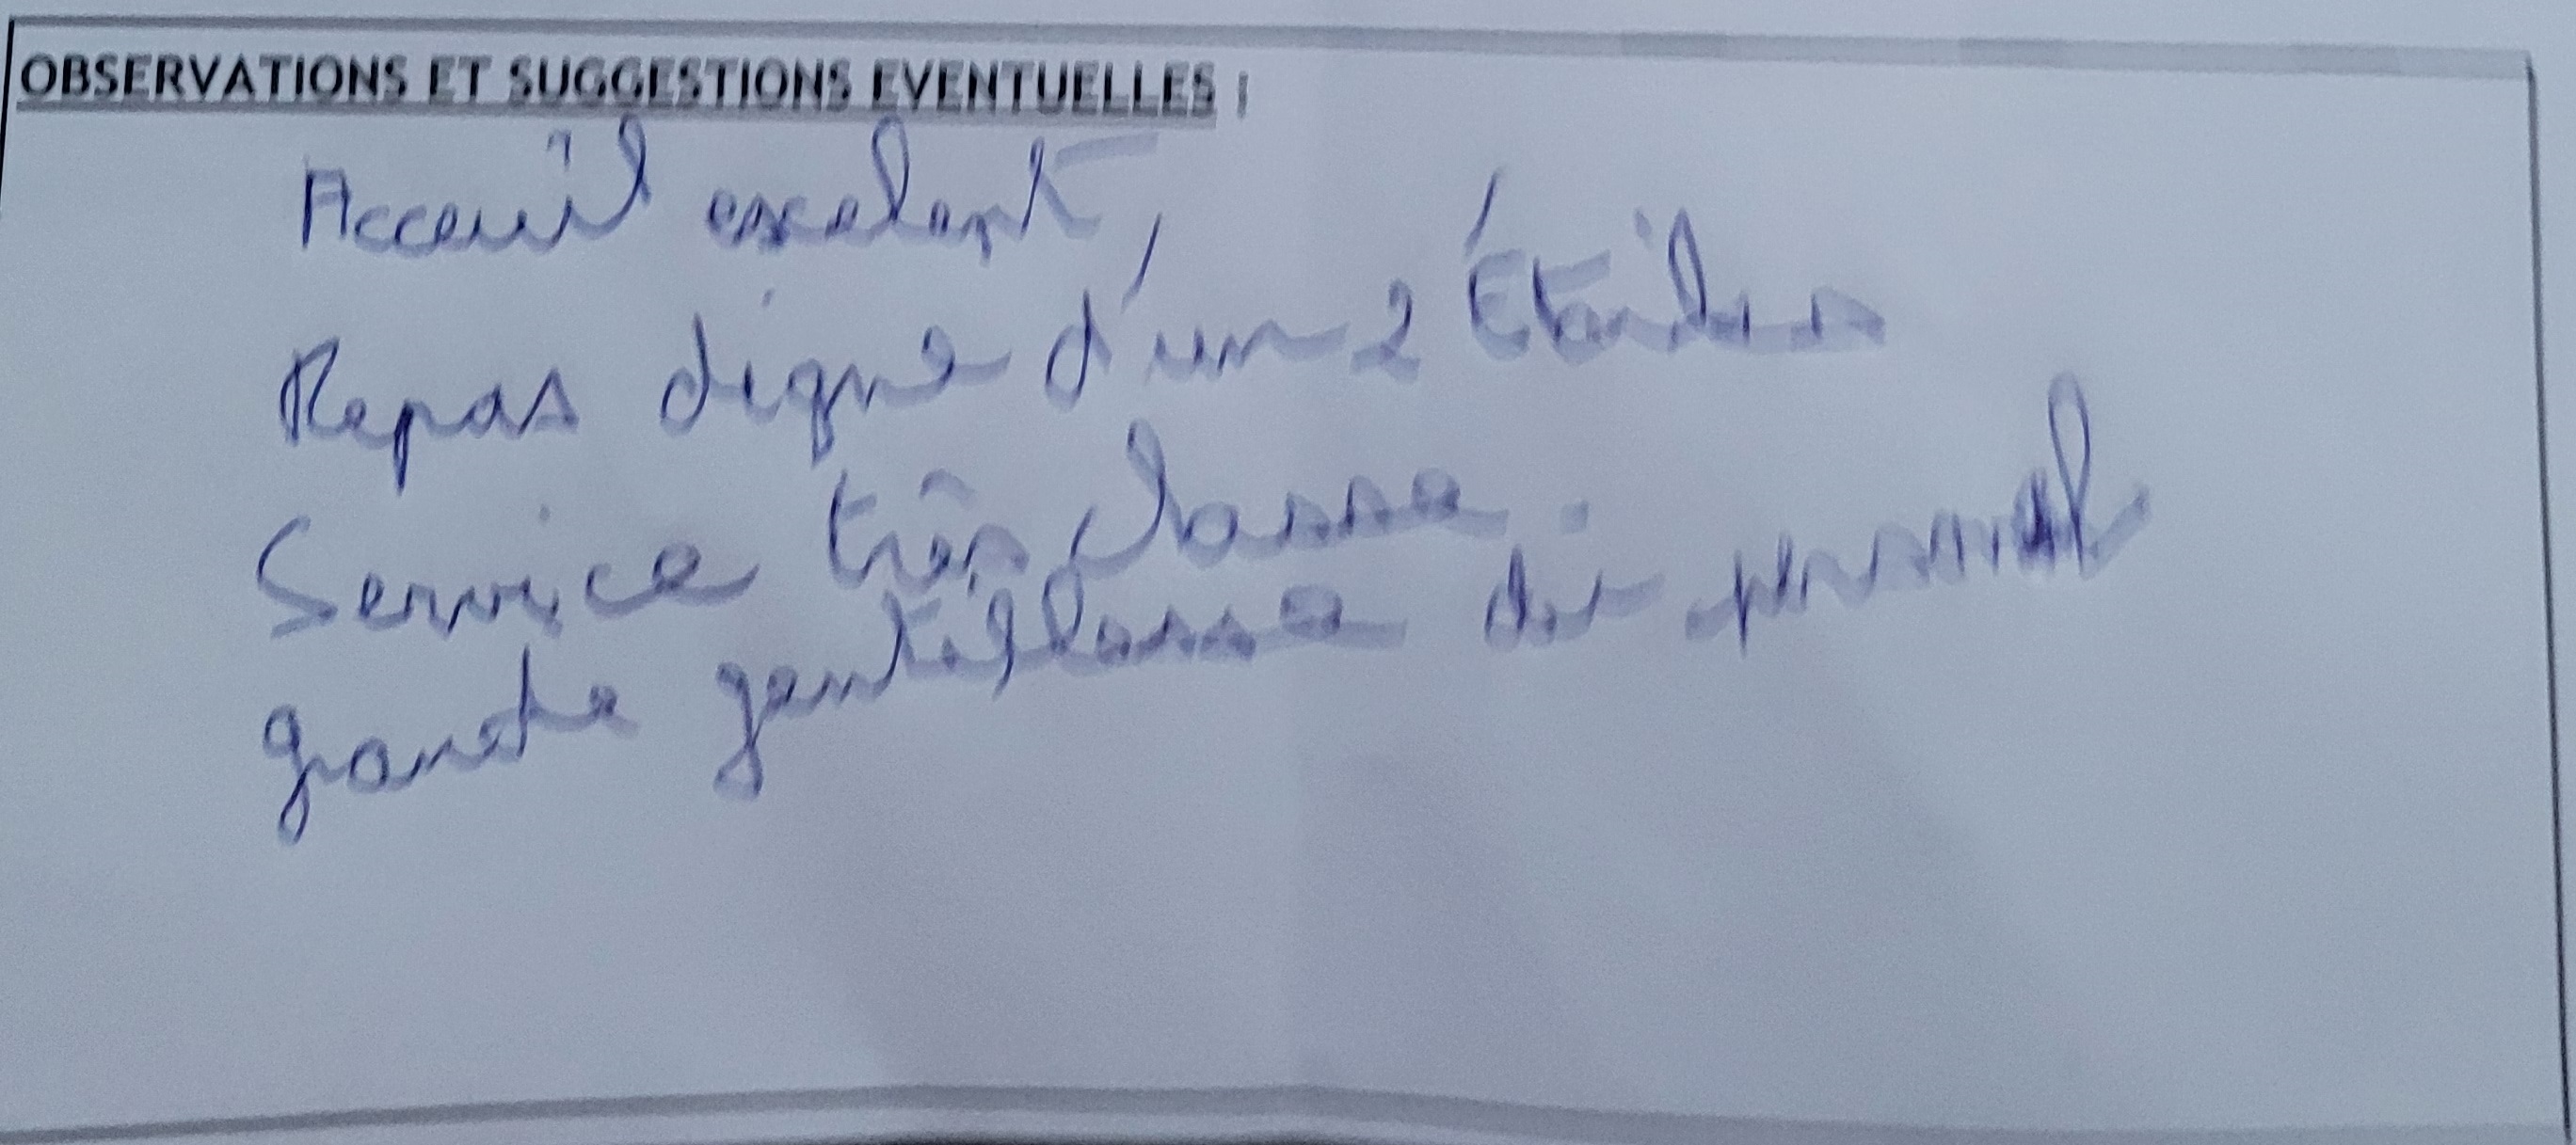 OBSERVATIONS ET SUGGESTIONS EVENTUELLES :
Acceuil excelent,
Repas digne d'un 2 Étoiles
Service très classe
grande gentillesse du personnel